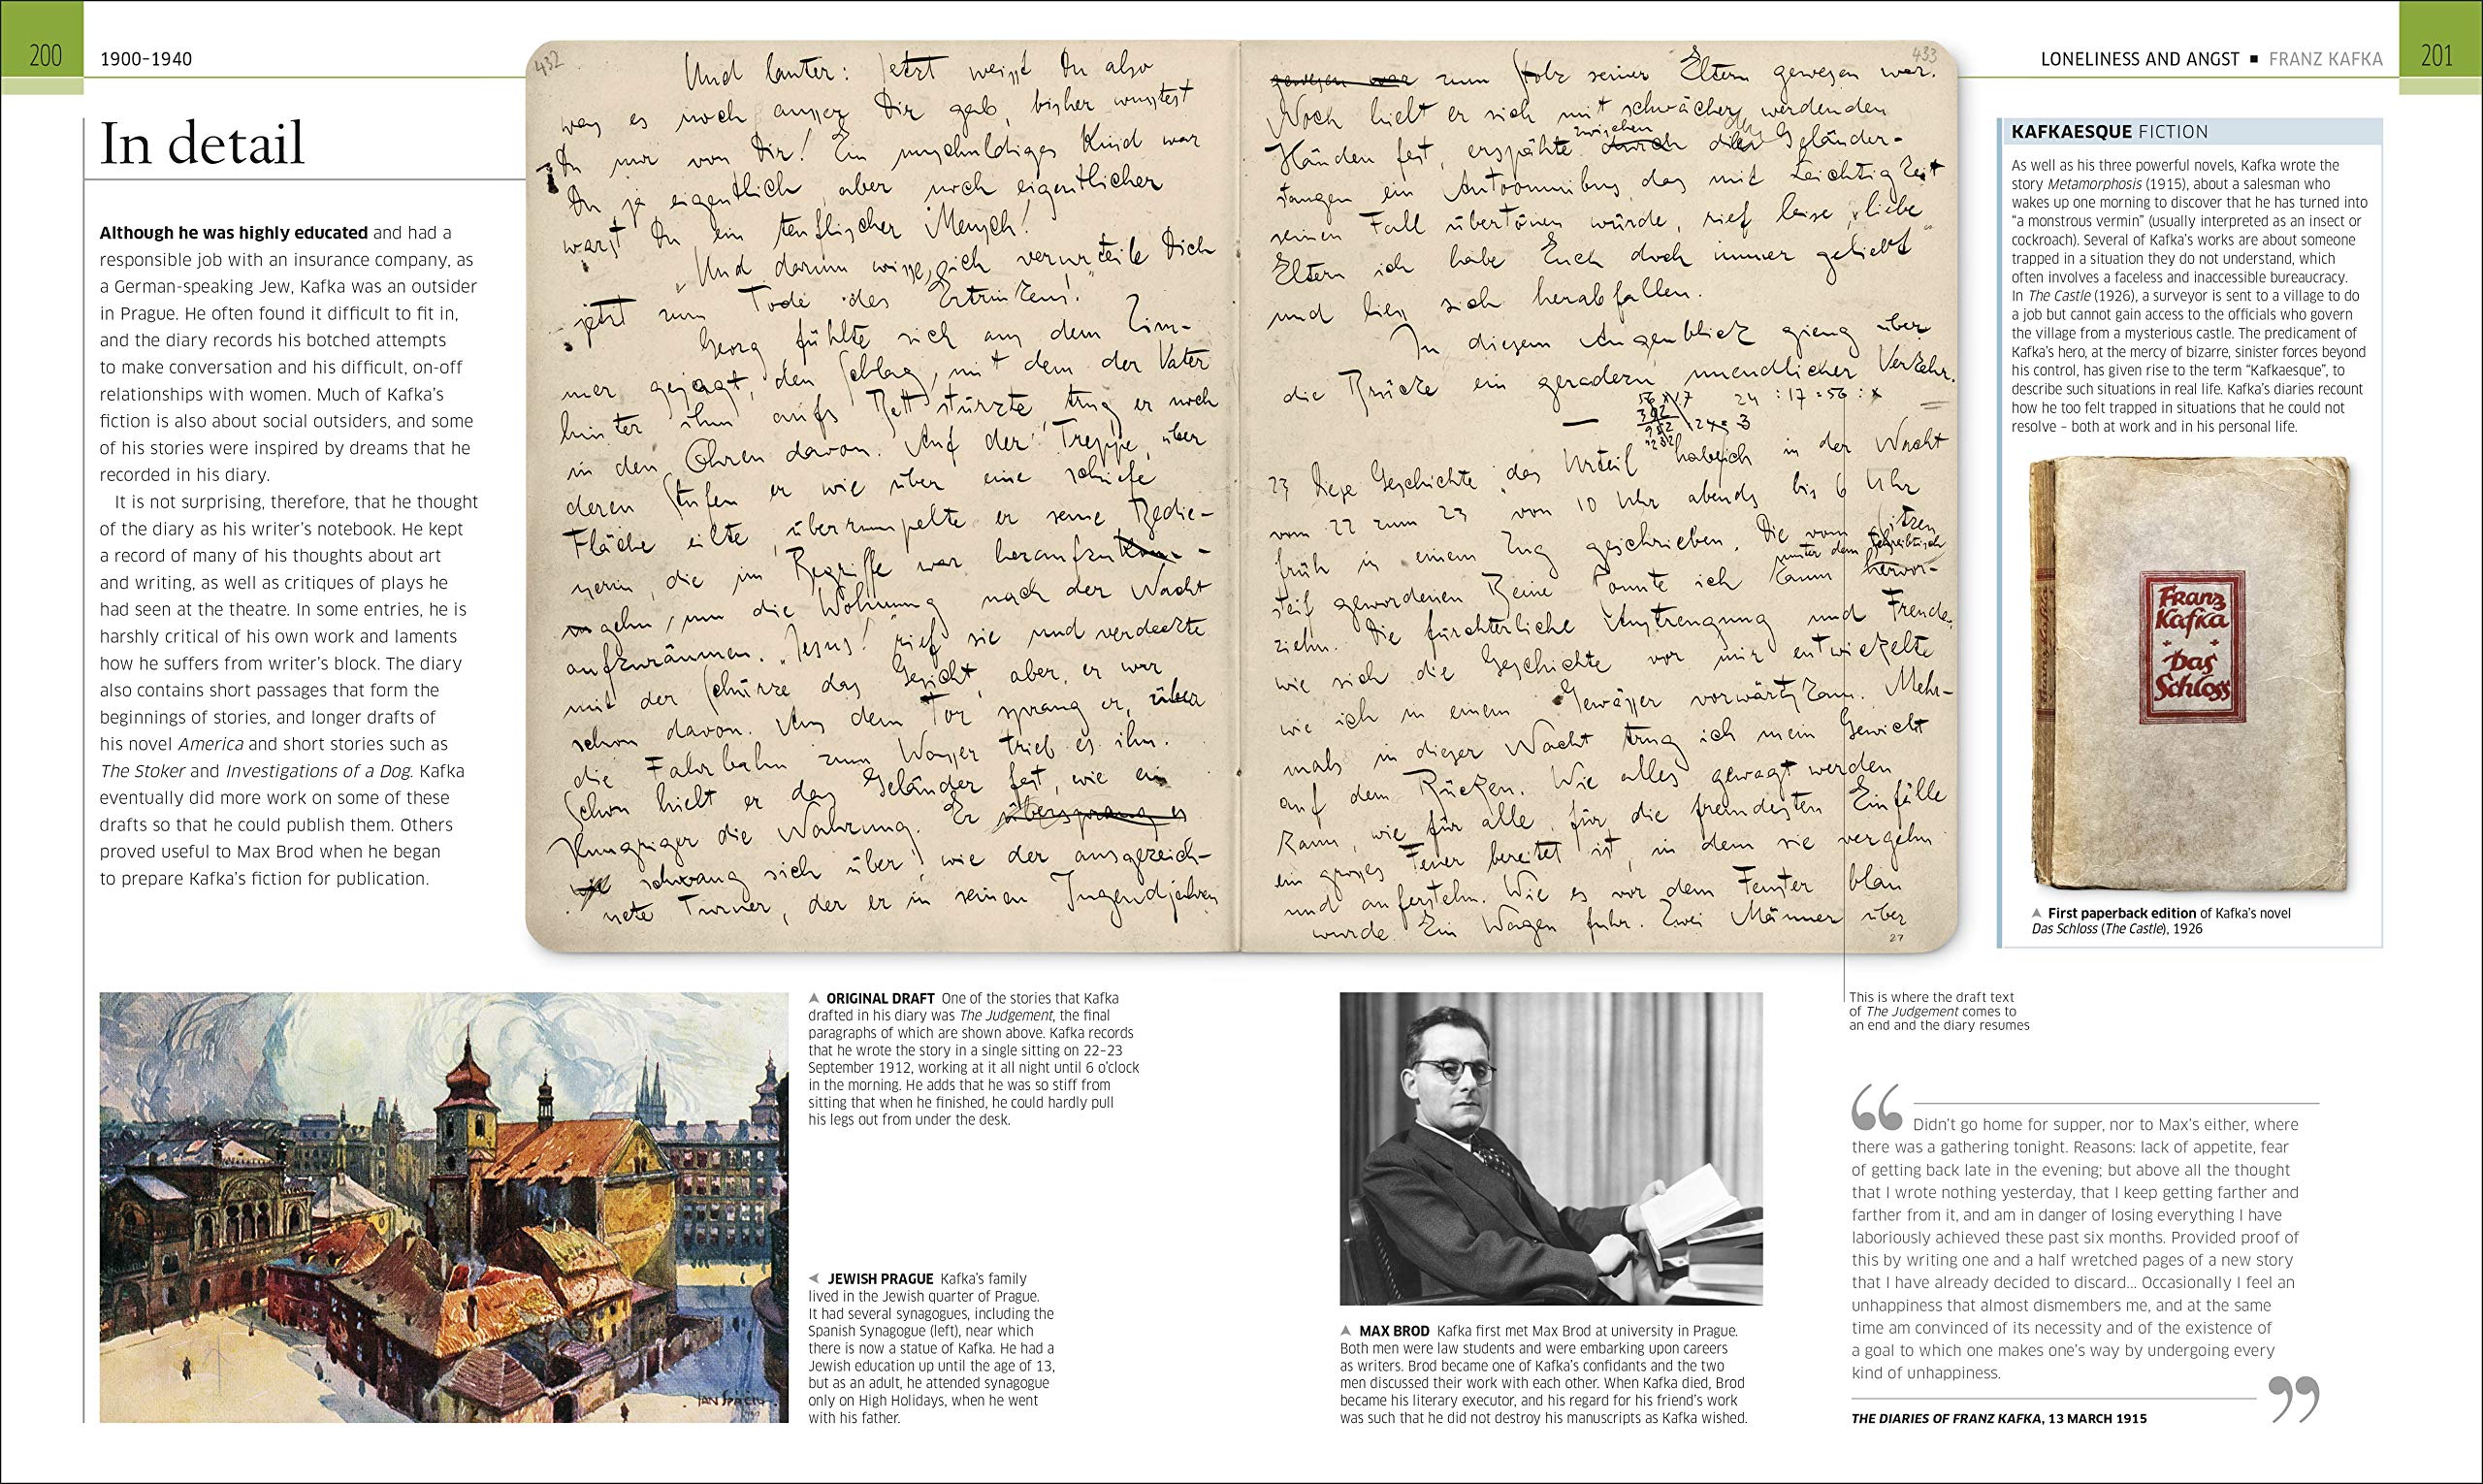 200
1900–1940
LONELINESS AND ANGST ■ FRANZ KAFKA
201
In detail
Although he was highly educated and had a
responsible job with an insurance company, as
a German-speaking Jew, Kafka was an outsider
in Prague. He often found it difficult to fit in,
and the diary records his botched attempts
to make conversation and his difficult, on-off
relationships with women. Much of Kafka's
fiction is also about social outsiders, and some
of his stories were inspired by dreams that he
recorded in his diary.
It is not surprising, therefore, that he thought
of the diary as his writer's notebook. He kept
a record of many of his thoughts about art
and writing, as well as critiques of plays he
had seen at the theatre. In some entries, he is
harshly critical of his own work and laments
how he suffers from writer's block. The diary
also contains short passages that form the
beginnings of stories, and longer drafts of
his novel America and short stories such as
The Stoker and Investigations of a Dog. Kafka
eventually did more work on some of these
drafts so that he could publish them. Others
proved useful to Max Brod when he began
to prepare Kafka's fiction for publication.
432
Und lauter: Jetzt weisst Du also
was es noch ausser Dir gab, bisher wusstest
Du nur von Dir! Ein unschuldiges Kind war
Du ja eigentlich, aber noch eigentlicher
warst Du ein teuflischer Mensch!
„Und darum wisse, ich verurteile Dich
jetzt zum Tode des Ertrinkens!"
Georg fühlte sich aus dem Zim-
mer gejagt, den Schlag, mit dem der Vater
hinter ihm aufs Bett stürzte trug er noch
in den Ohren davon. Auf der Treppe, über
deren Stufen er wie über eine schiefe
Fläche eilte, überrumpelte er seine Bedie-
nerin, die im Begriffe war heraufzu
gehn, um die Wohnung nach der Nacht
aufzuräumen. „Jesus!" rief sie und verdeckte
mit der Schürze das Gesicht, aber er war
schon davon. Aus dem Tor sprang er, über
die Fahrbahn zum Wasser trieb es ihn.
Schon hielt er das Geländer fest, wie ein
Hungriger die Nahrung. Er übersprang es
schwang sich über, wie der ausgezeich-
nete Turner, der er in seinen Jugendjahren
433
gewesen war zum Stolz seiner Eltern gewesen war.
Noch hielt er sich mit schwächer werdenden
Händen fest, erspähte zwischen durch den Geländer-
stangen ein Autoomnibus, das mit Leichtigkeit
seinen Fall übertönen würde, rief leise „liebe
Eltern ich habe Euch doch immer geliebt"
und liess sich herabfallen.
In diesem Augenblick gieng über
die Brücke ein geradezu unendlicher Verkehr.
56 x 17
24 : 17 = 56 : x
392
952
: 24 = 3
23 Diese Geschichte „das Urteil" habe ich in der Nacht
vom 22 zum 23 von 10 Uhr abends bis 6 Uhr
früh in einem Zug geschrieben. Die vom Sitzen
steif gewordenen Beine konnte ich kaum unter dem Schreibtisch hervor-
ziehn. Die fürchterliche Anstrengung und Freude,
wie sich die Geschichte vor mir entwickelte
wie ich in einem Gewässer vorwärtskam. Mehr-
mals in dieser Nacht trug ich mein Gewicht
auf dem Rücken. Wie alles gewagt werden
kann, wie für alle, für die fremdesten Einfälle
ein grosses Feuer bereitet ist, in dem sie vergehn
und auferstehn. Wie es vor dem Fenster blau
wurde. Ein Wagen fuhr. Zwei Männer über
27
KAFKAESQUE FICTION
As well as his three powerful novels, Kafka wrote the
story Metamorphosis (1915), about a salesman who
wakes up one morning to discover that he has turned into
"a monstrous vermin" (usually interpreted as an insect or
cockroach). Several of Kafka's works are about someone
trapped in a situation they do not understand, which
often involves a faceless and inaccessible bureaucracy.
In The Castle (1926), a surveyor is sent to a village to do
a job but cannot gain access to the officials who govern
the village from a mysterious castle. The predicament of
Kafka's hero, at the mercy of bizarre, sinister forces beyond
his control, has given rise to the term "Kafkaesque", to
describe such situations in real life. Kafka's diaries recount
how he too felt trapped in situations that he could not
resolve – both at work and in his personal life.
Franz
Kafka
Das
Schloss
First paperback edition of Kafka's novel
Das Schloss (The Castle), 1926
ORIGINAL DRAFT One of the stories that Kafka
drafted in his diary was The Judgement, the final
paragraphs of which are shown above. Kafka records
that he wrote the story in a single sitting on 22–23
September 1912, working at it all night until 6 o'clock
in the morning. He adds that he was so stiff from
sitting that when he finished, he could hardly pull
his legs out from under the desk.
JEWISH PRAGUE Kafka's family
lived in the Jewish quarter of Prague.
It had several synagogues, including the
Spanish Synagogue (left), near which
there is now a statue of Kafka. He had a
Jewish education up until the age of 13,
but as an adult, he attended synagogue
only on High Holidays, when he went
with his father.
MAX BROD Kafka first met Max Brod at university in Prague.
Both men were law students and were embarking upon careers
as writers. Brod became one of Kafka's confidants and the two
men discussed their work with each other. When Kafka died, Brod
became his literary executor, and his regard for his friend's work
was such that he did not destroy his manuscripts as Kafka wished.
This is where the draft text
of The Judgement comes to
an end and the diary resumes
“ Didn't go home for supper, nor to Max's either, where
there was a gathering tonight. Reasons: lack of appetite, fear
of getting back late in the evening; but above all the thought
that I wrote nothing yesterday, that I keep getting farther and
farther from it, and am in danger of losing everything I have
laboriously achieved these past six months. Provided proof of
this by writing one and a half wretched pages of a new story
that I have already decided to discard... Occasionally I feel an
unhappiness that almost dismembers me, and at the same
time am convinced of its necessity and of the existence of
a goal to which one makes one's way by undergoing every
kind of unhappiness. ”
THE DIARIES OF FRANZ KAFKA, 13 MARCH 1915